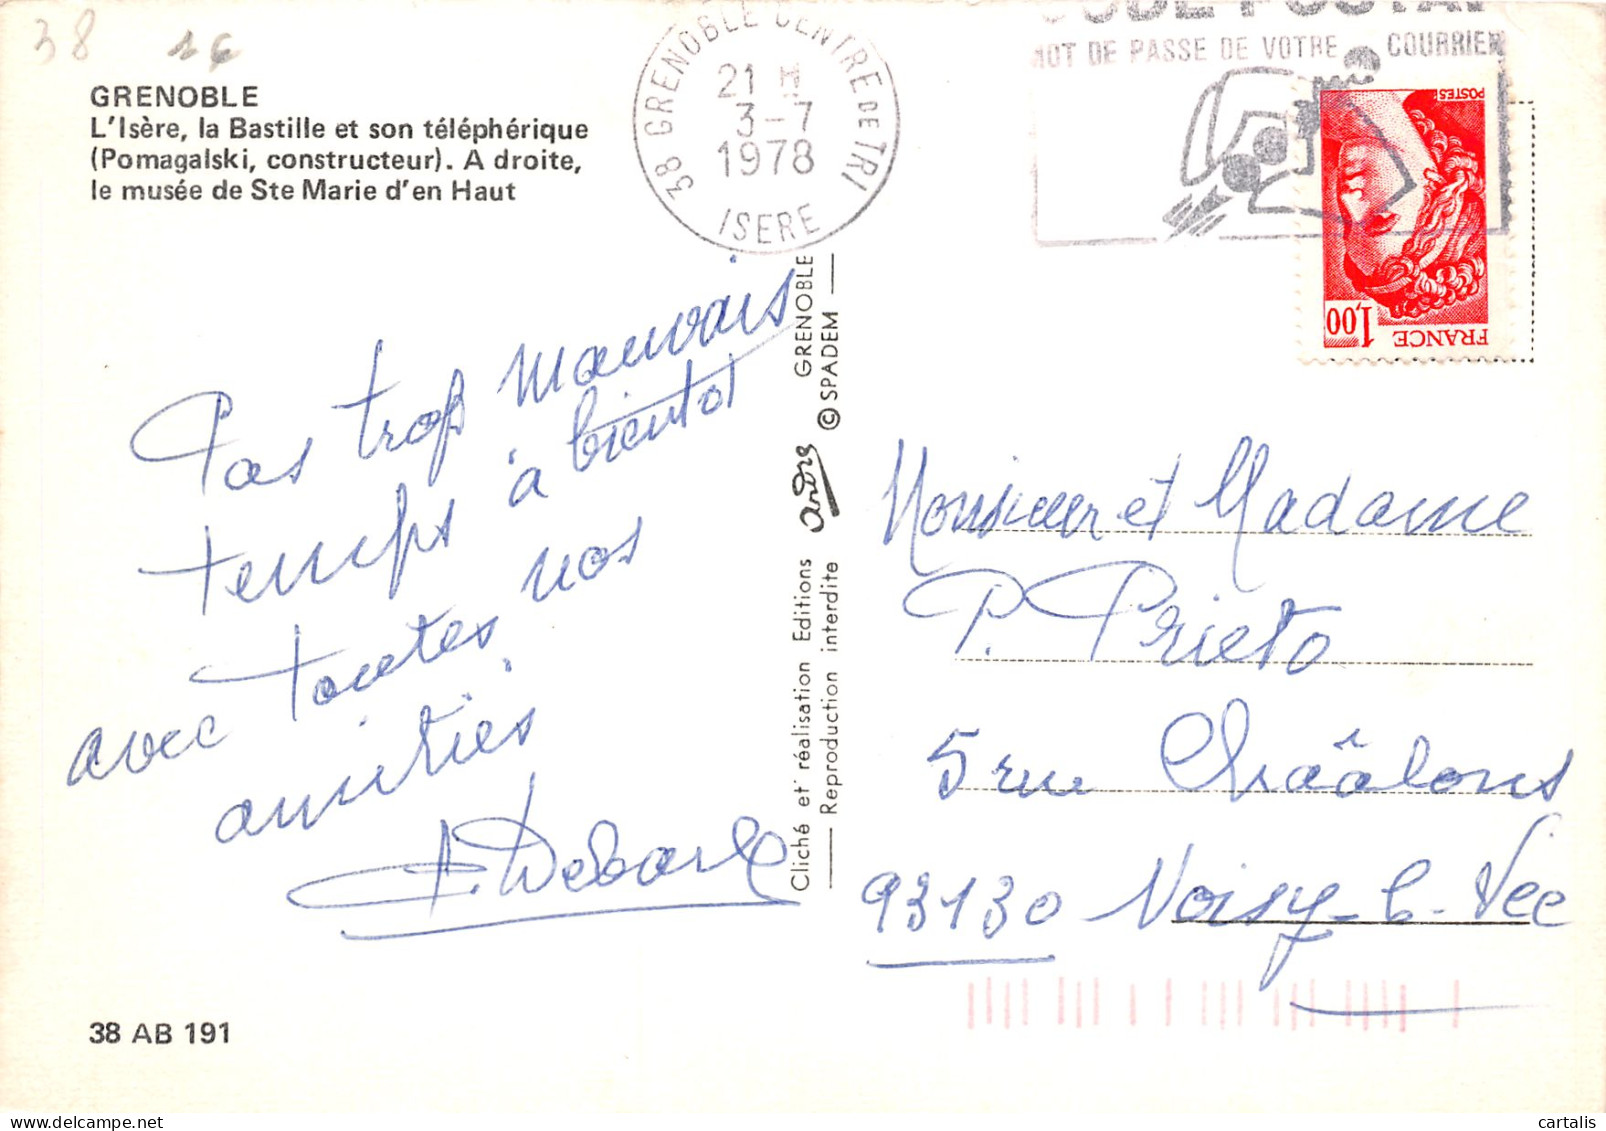 38 1€
GRENOBLE
L'Isère, la Bastille et son téléphérique
(Pomagalski, constructeur). A droite,
le musée de Ste Marie d'en Haut
38 GRENOBLE CENTRE DE TRI
21 H
3-7
1978
ISERE
CODE POSTAL
MOT DE PASSE DE VOTRE COURRIER
POSTES
1,00
FRANCE
Pas trop mauvais
temps à bientot
avec toutes nos
amitiés
38 AB 191
Cliché et réalisation Editions andré GRENOBLE
Reproduction interdite © SPADEM
Monsieur et Madame
P. Prieto
5 rue Chââlons
93130 Noisy-le-Sec